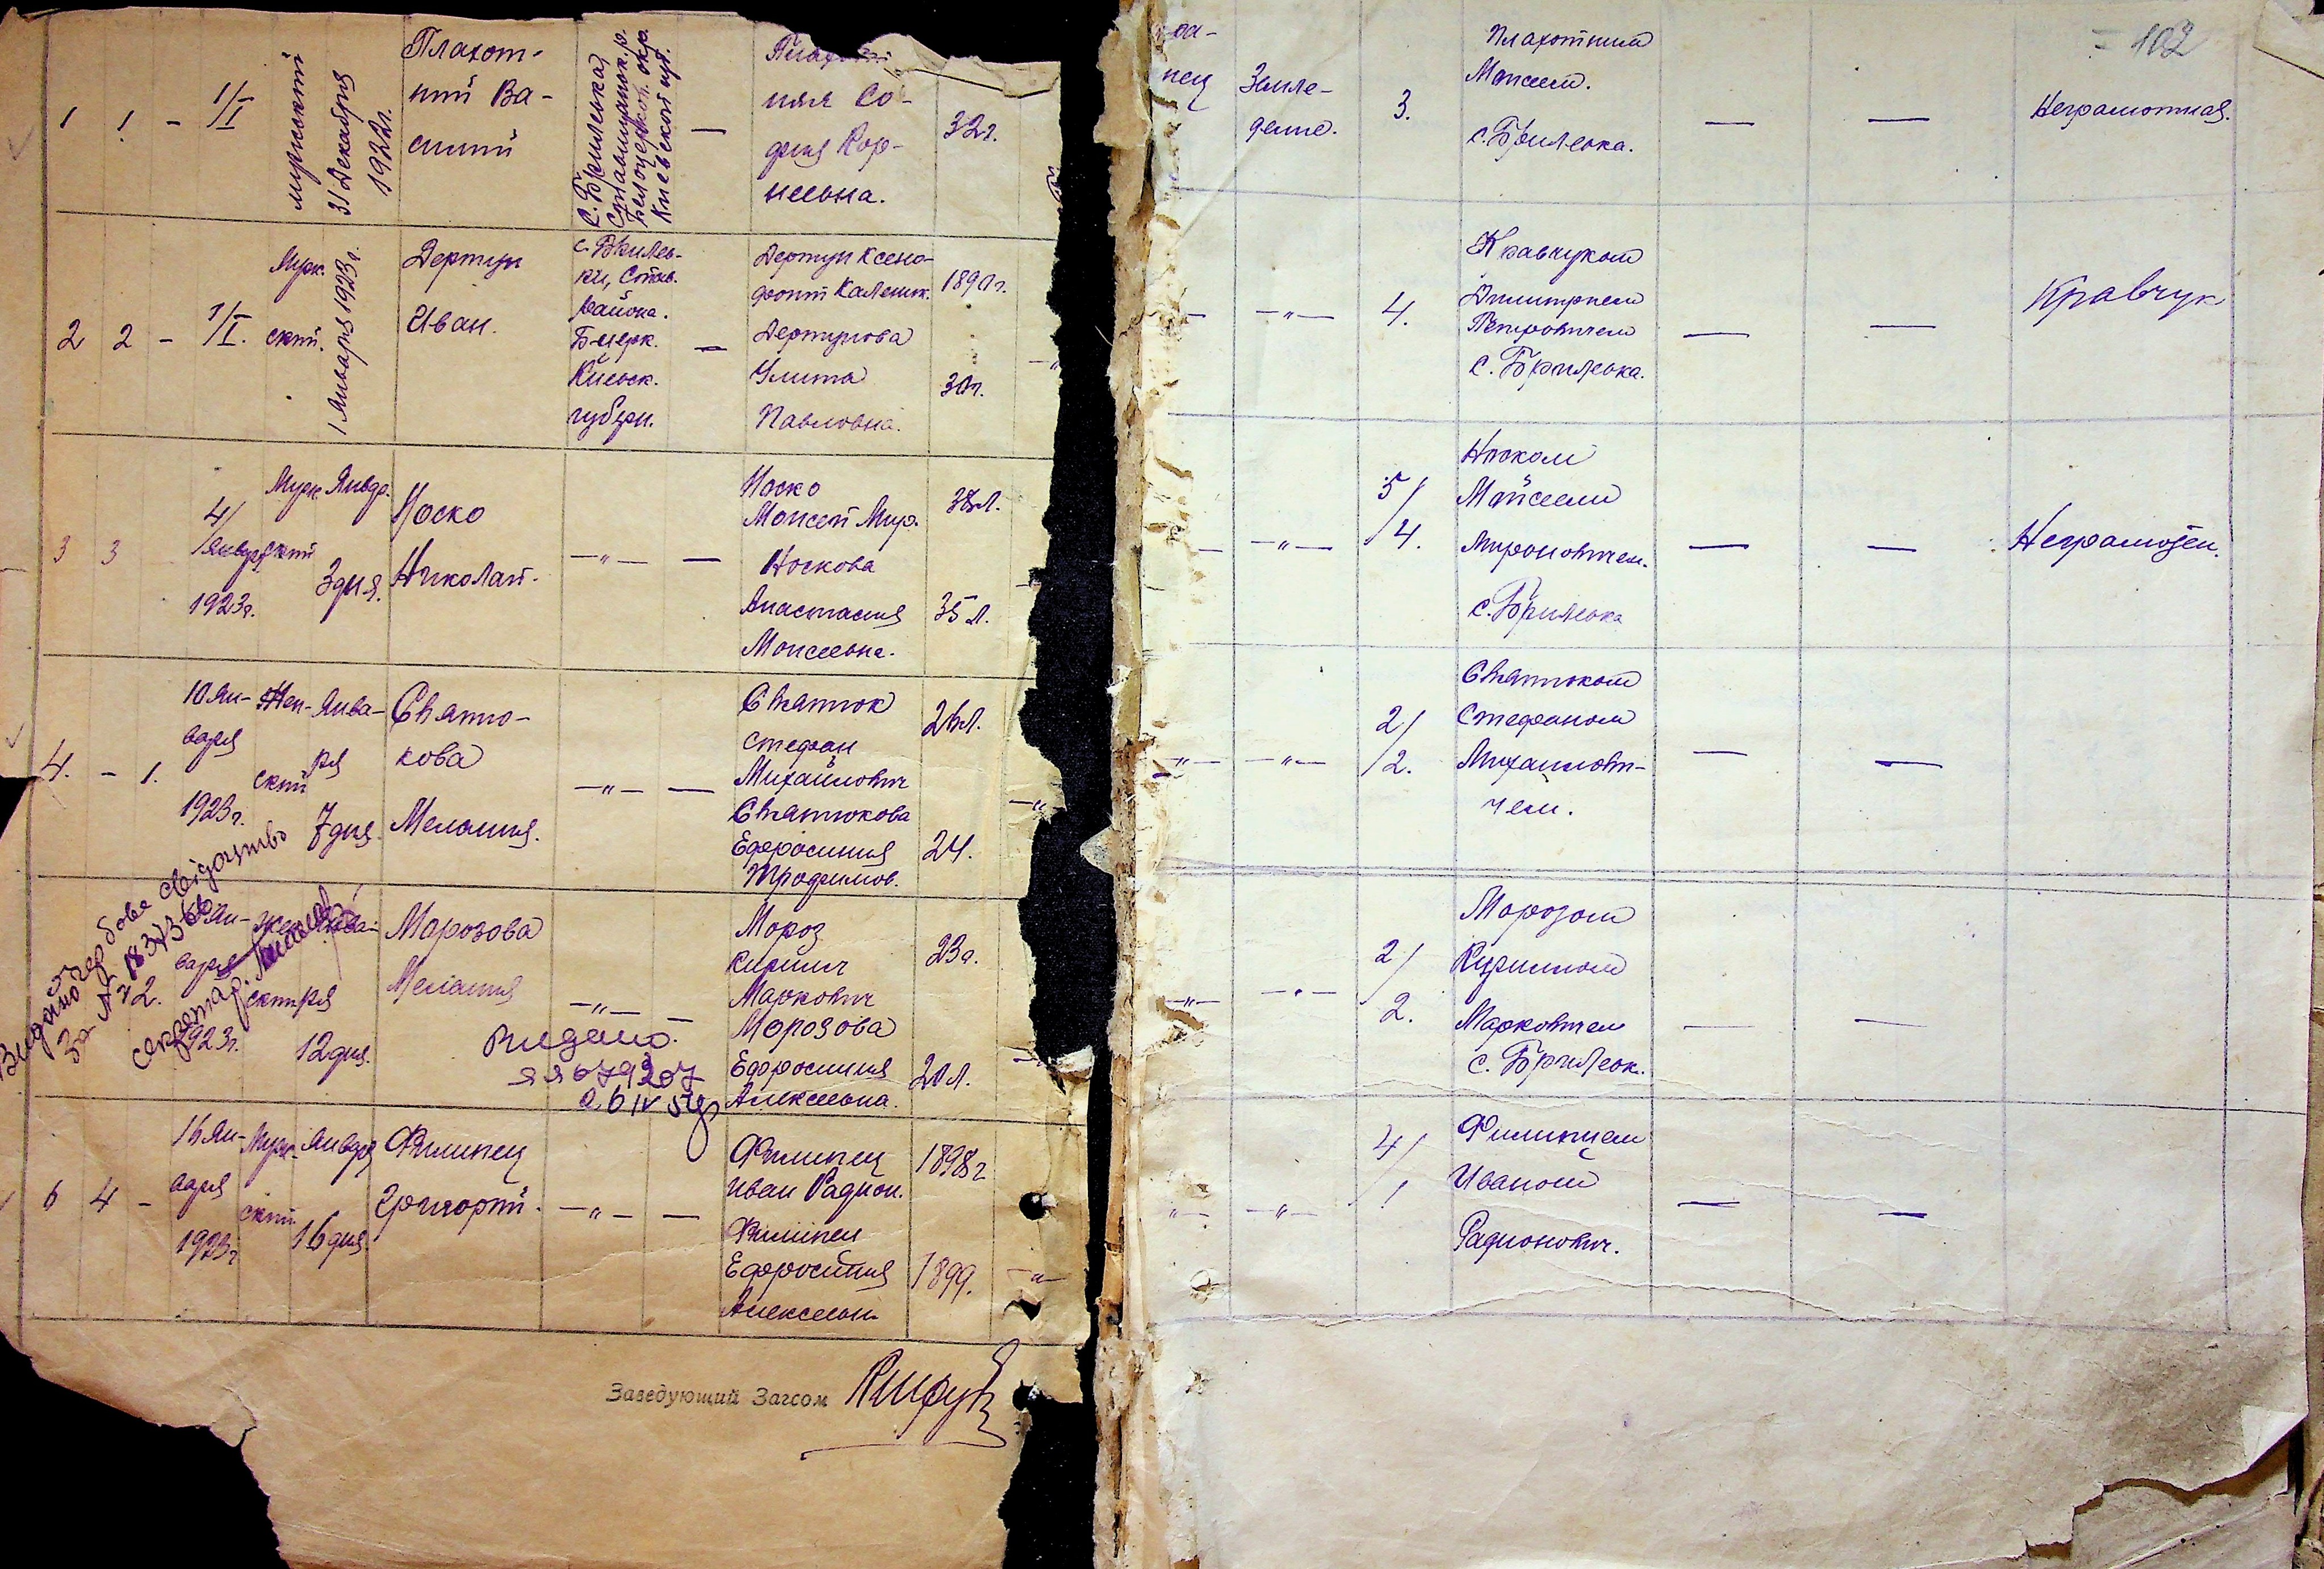 1 1 - 1/I
мужской
31 Декабря
1922г.
Плахот-
ний Ва-
силий
С. Брилевкая
Киевской губ.
—
ния Со-
фия Кор-
неевна.
32г.
2 2 - 1/I.
Муж.
ский.
1 Января 1923г.
Дертун
Иван.
с. Брилев-
ки, Став.
района.
Б-церк.
Киевск.
губерн.
—
Дертун Ксено-
фонт Каленик.
Дертунова
Улита
Павловна.
1890г.
30г.
3 3
4/
Января
1923г.
Муж.
ский
Январ.
3 дня.
Носко
Николай.
—"— —
Носко
Моисей Мир.
Носкова
Анастасия
Моисеевна.
38л.
35л.
4. - 1.
10 Ян-
варя
1923г.
Жен-
ский
Янва-
ря
7 дня.
Святю-
кова
Мелания.
—"— —
Святюк
Стефан
Михайлович
Святюкова
Ефросиния
Трофимов.
26л.
24.
Видано гербове свідоцтво
За №
секретар
варя
1923г.
12 дня.
Морозова
Мелания
—"— —
Видано.
Мороз
Кирилл
Маркович
Морозова
Ефросиния
Алексеевна.
23г.
20л.
6 4 -
16 Ян-
варя
1923г
Муж-
ский
Января
16 дня.
Филипец
Григорий.
—"— —
Филипец
Иван Радион.
Филипец
Ефросиния
Алексеевн.
1898г
1899.
—"—
Заведующий Загсом
102
нец
Земле-
делие.
3.
Плахотний
Моисеем.
с. Брилевка.
— —
Неграмотная.
—"—
4.
Кравчуком
Димитрием
Петровичем
с. Брилевка.
— —
Кравчук
—"—
5/4.
Носком
Мойсеем
Мироновичем.
с. Брилевка
— —
Неграмотен.
—"— —"—
2/2.
Святюком
Стефаном
Михайлови-
чем.
— —
—"— —"—
2/2.
Морозом
Кириллом
Марковичем
с. Брилевк.
— —
—"— —"—
4/1
Филипцем
Иваном
Радионович.
— —